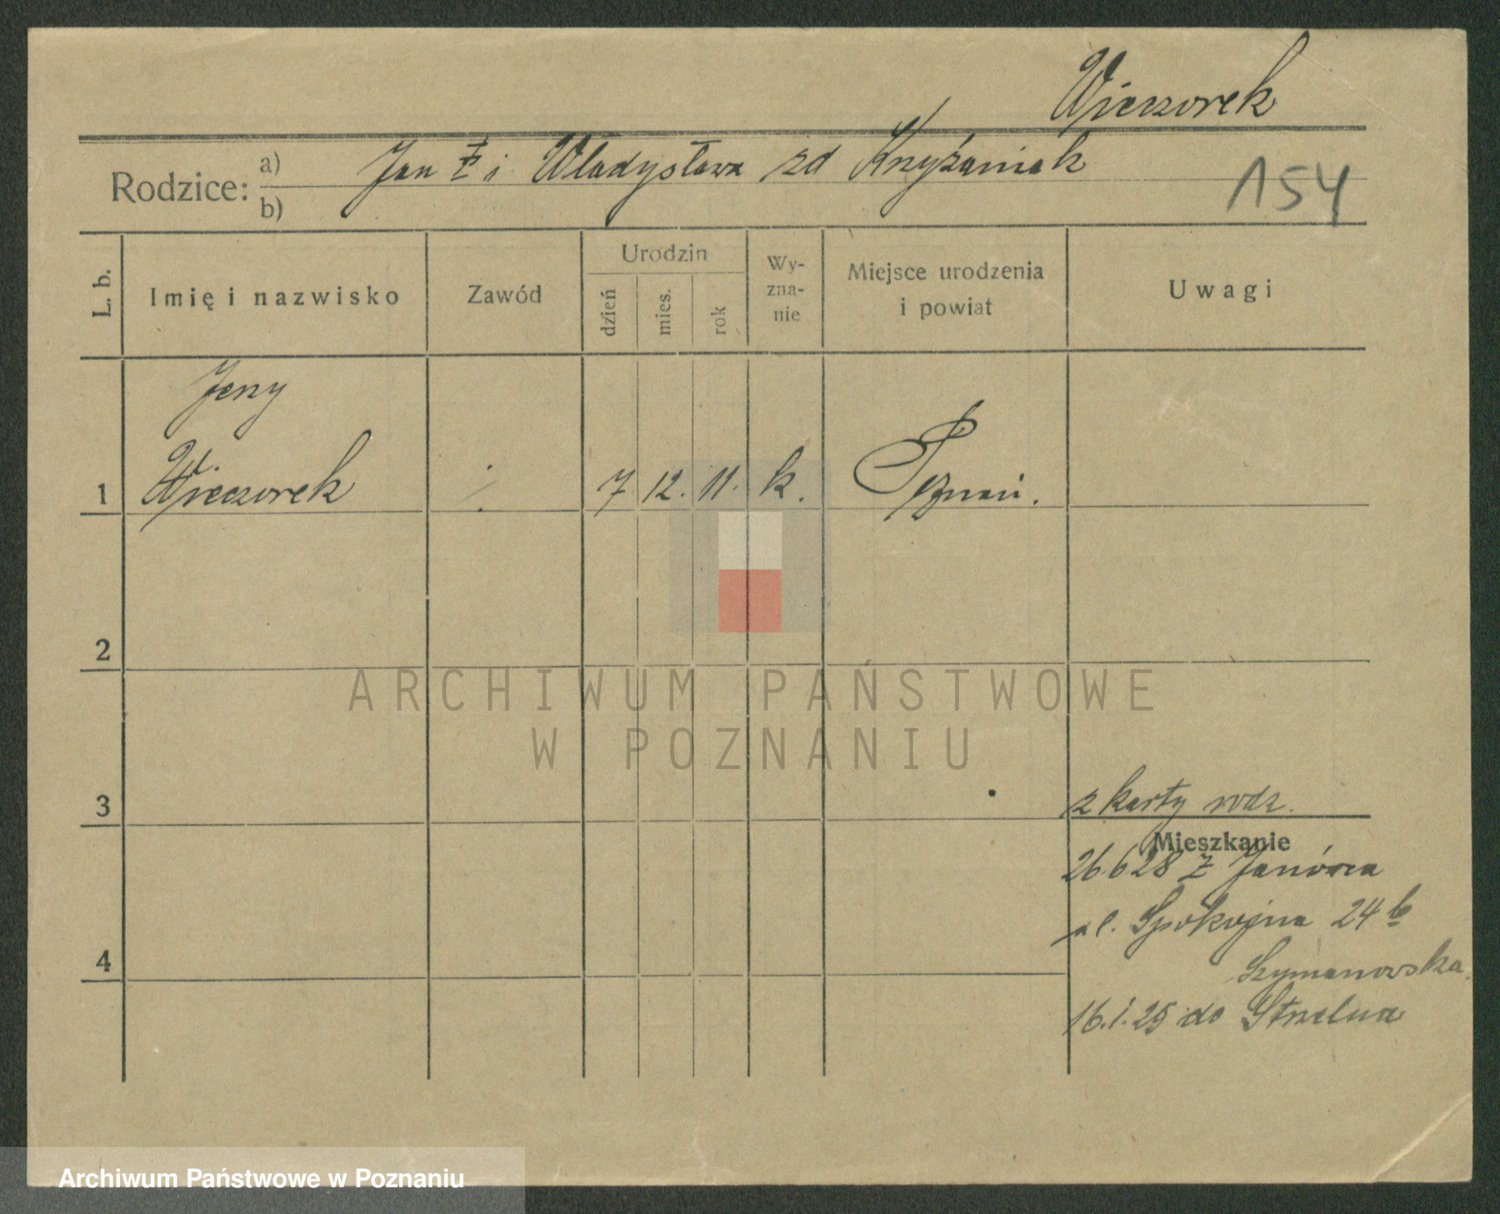 Wieczorek
Rodzice: a) b) Jan i Władysława zd Krzyżaniak
154
L. b. Imię i nazwisko Zawód Urodzin dzień mies. rok Wy-zna-nie Miejsce urodzenia i powiat Uwagi
Jerzy
1 Wieczorek 7 12. 11. k. Poznań.
2
ARCHIWUM PAŃSTWOWE
W POZNANIU
3 z karty rodz.
Mieszkanie
26.6 28 z Janówca
ul. Spokojna 24 b
4 Szymanowska
16.1.25 do Strzelna
Archiwum Państwowe w Poznaniu